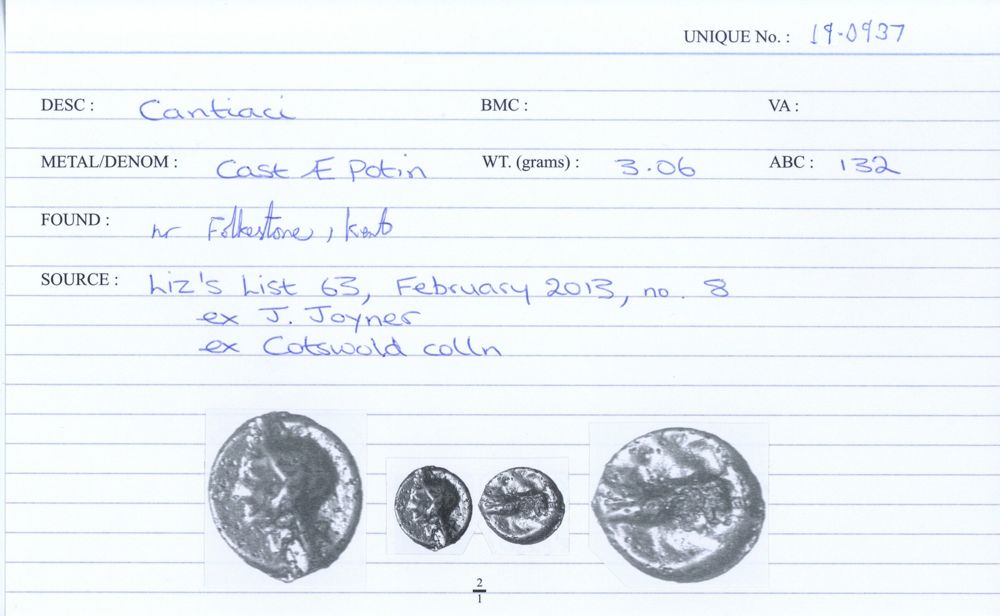 UNIQUE No. : 19-0937
DESC : Cantiaci BMC : VA :
METAL/DENOM : Cast Æ Potin WT. (grams) : 3.06 ABC : 132
FOUND : nr Folkestone, Kent
SOURCE : Liz's List 63, February 2013, no. 8
ex J. Joyner
ex Cotswold colln
2
1